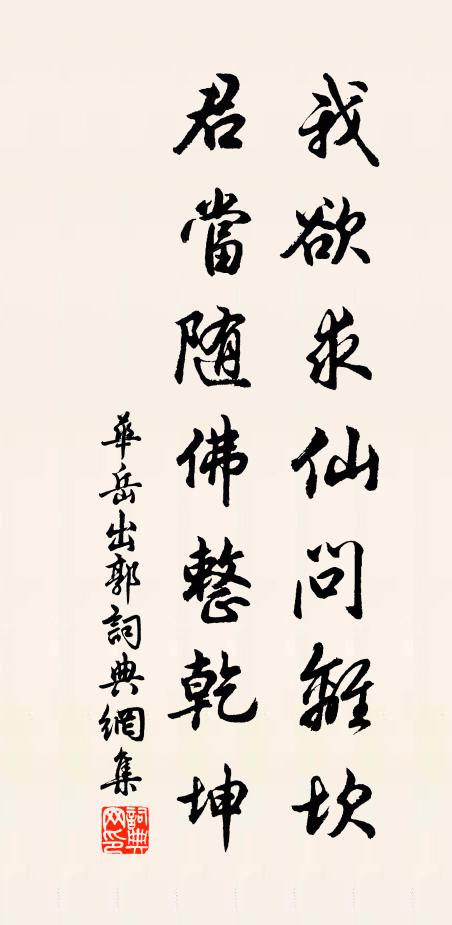 我欲求仙問離坎
君當随佛整乾坤
華岳出郭詞典網集
詞典
网印